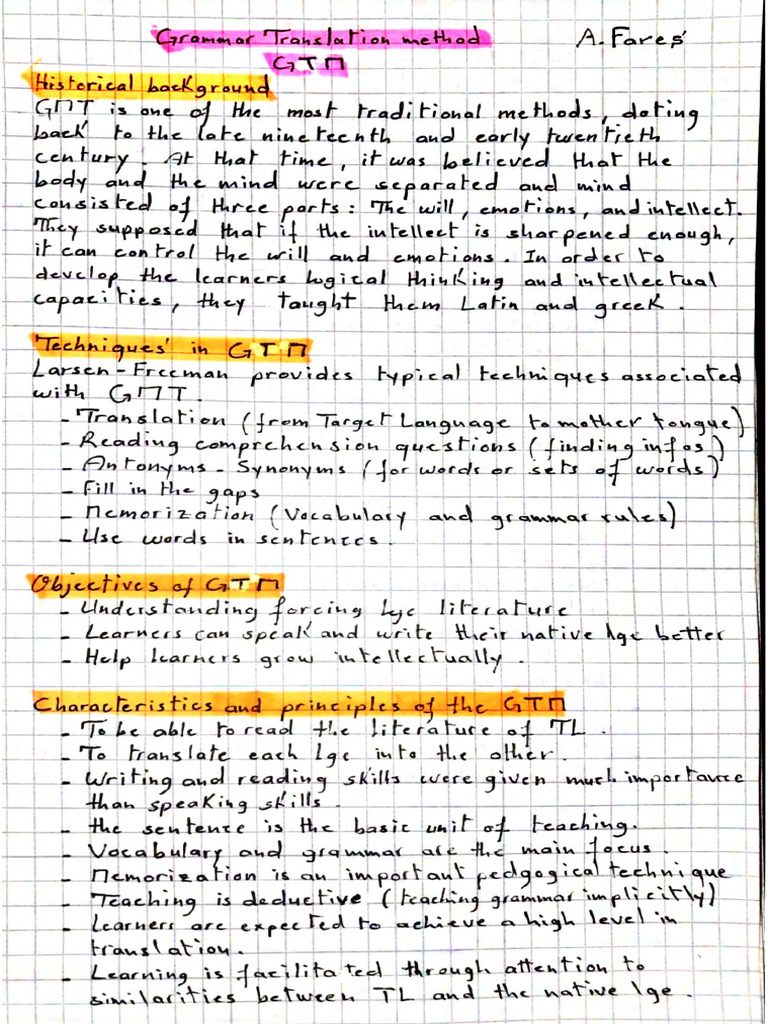 Grammar Translation method A. Fares
GTM
Historical background
GMT is one of the most traditional methods, dating
back to the late nineteenth and early twentieth
century. At that time, it was believed that the
body and the mind were separated and mind
consisted of three parts: The will, emotions, and intellect.
They supposed that if the intellect is sharpened enough,
it can control the will and emotions. In order to
develop the learners logical thinking and intellectual
capacities, they taught them Latin and greek.
Techniques in GTM
Larsen-Freeman provides typical techniques associated
with GMT.
- Translation (from Target Language to mother tongue)
- Reading comprehension questions (finding infos)
- Antonyms - Synonyms (for words or sets of words)
- Fill in the gaps
- Memorization (Vocabulary and grammar rules)
- Use words in sentences.
Objectives of GTM
- Understanding forcing lge literature
- Learners can speak and write their native lge better
- Help learners grow intellectually.
Characteristics and principles of the GTM
- To be able to read the literature of TL.
- To translate each lge into the other.
- Writing and reading skills were given much importance
than speaking skills.
- the sentence is the basic unit of teaching.
- Vocabulary and grammar are the main focus.
- Memorization is an important pedgogical technique
- Teaching is deductive (teaching grammar implicitly)
- Learners are expected to achieve a high level in
translation.
- Learning is facilitated through attention to
similarities between TL and the native lge.